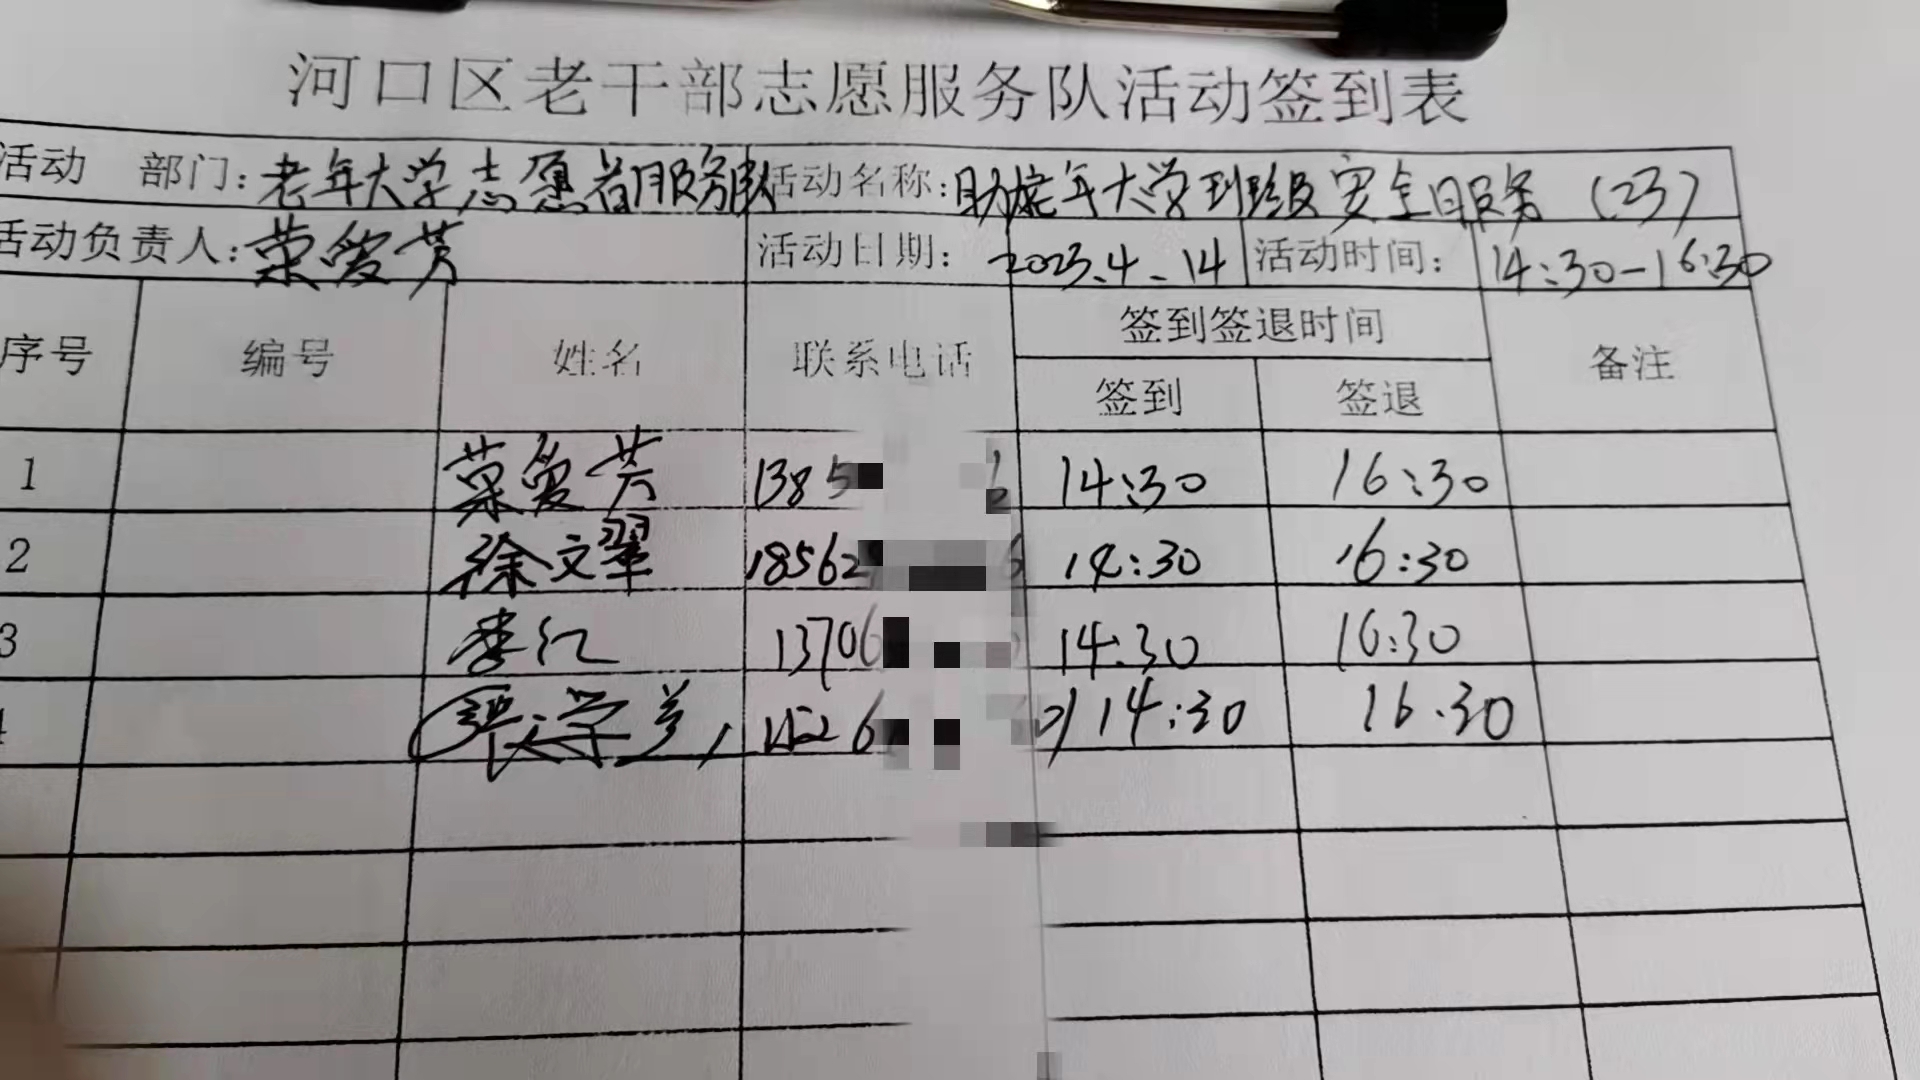 河口区老干部志愿服务队活动签到表
活动 部门：老年大学志愿者服务队 活动名称：助老年大学到班级安全日服务（23）
活动负责人：荣爱芳 活动日期：2023.4.14 活动时间：14:30-16:30
序号 编号 姓名 联系电话 签到签退时间 备注
签到 签退
1 荣爱芳 1385 14:30 16:30
2 徐文翠 18562 14:30 16:30
3 李红 1370 14:30 16:30
4 张学兰 1526 14:30 16:30